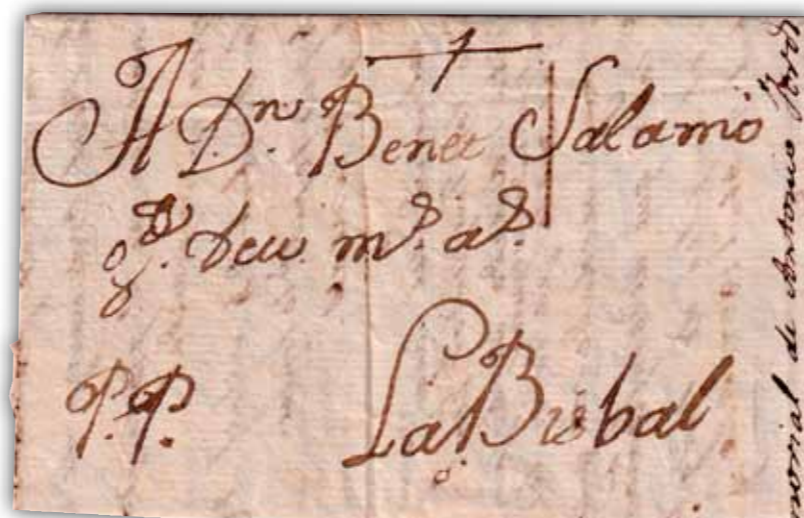 A Dn. Benet Salamó
Deu m.s a.s
P.P.
La Bisbal
de Antonio